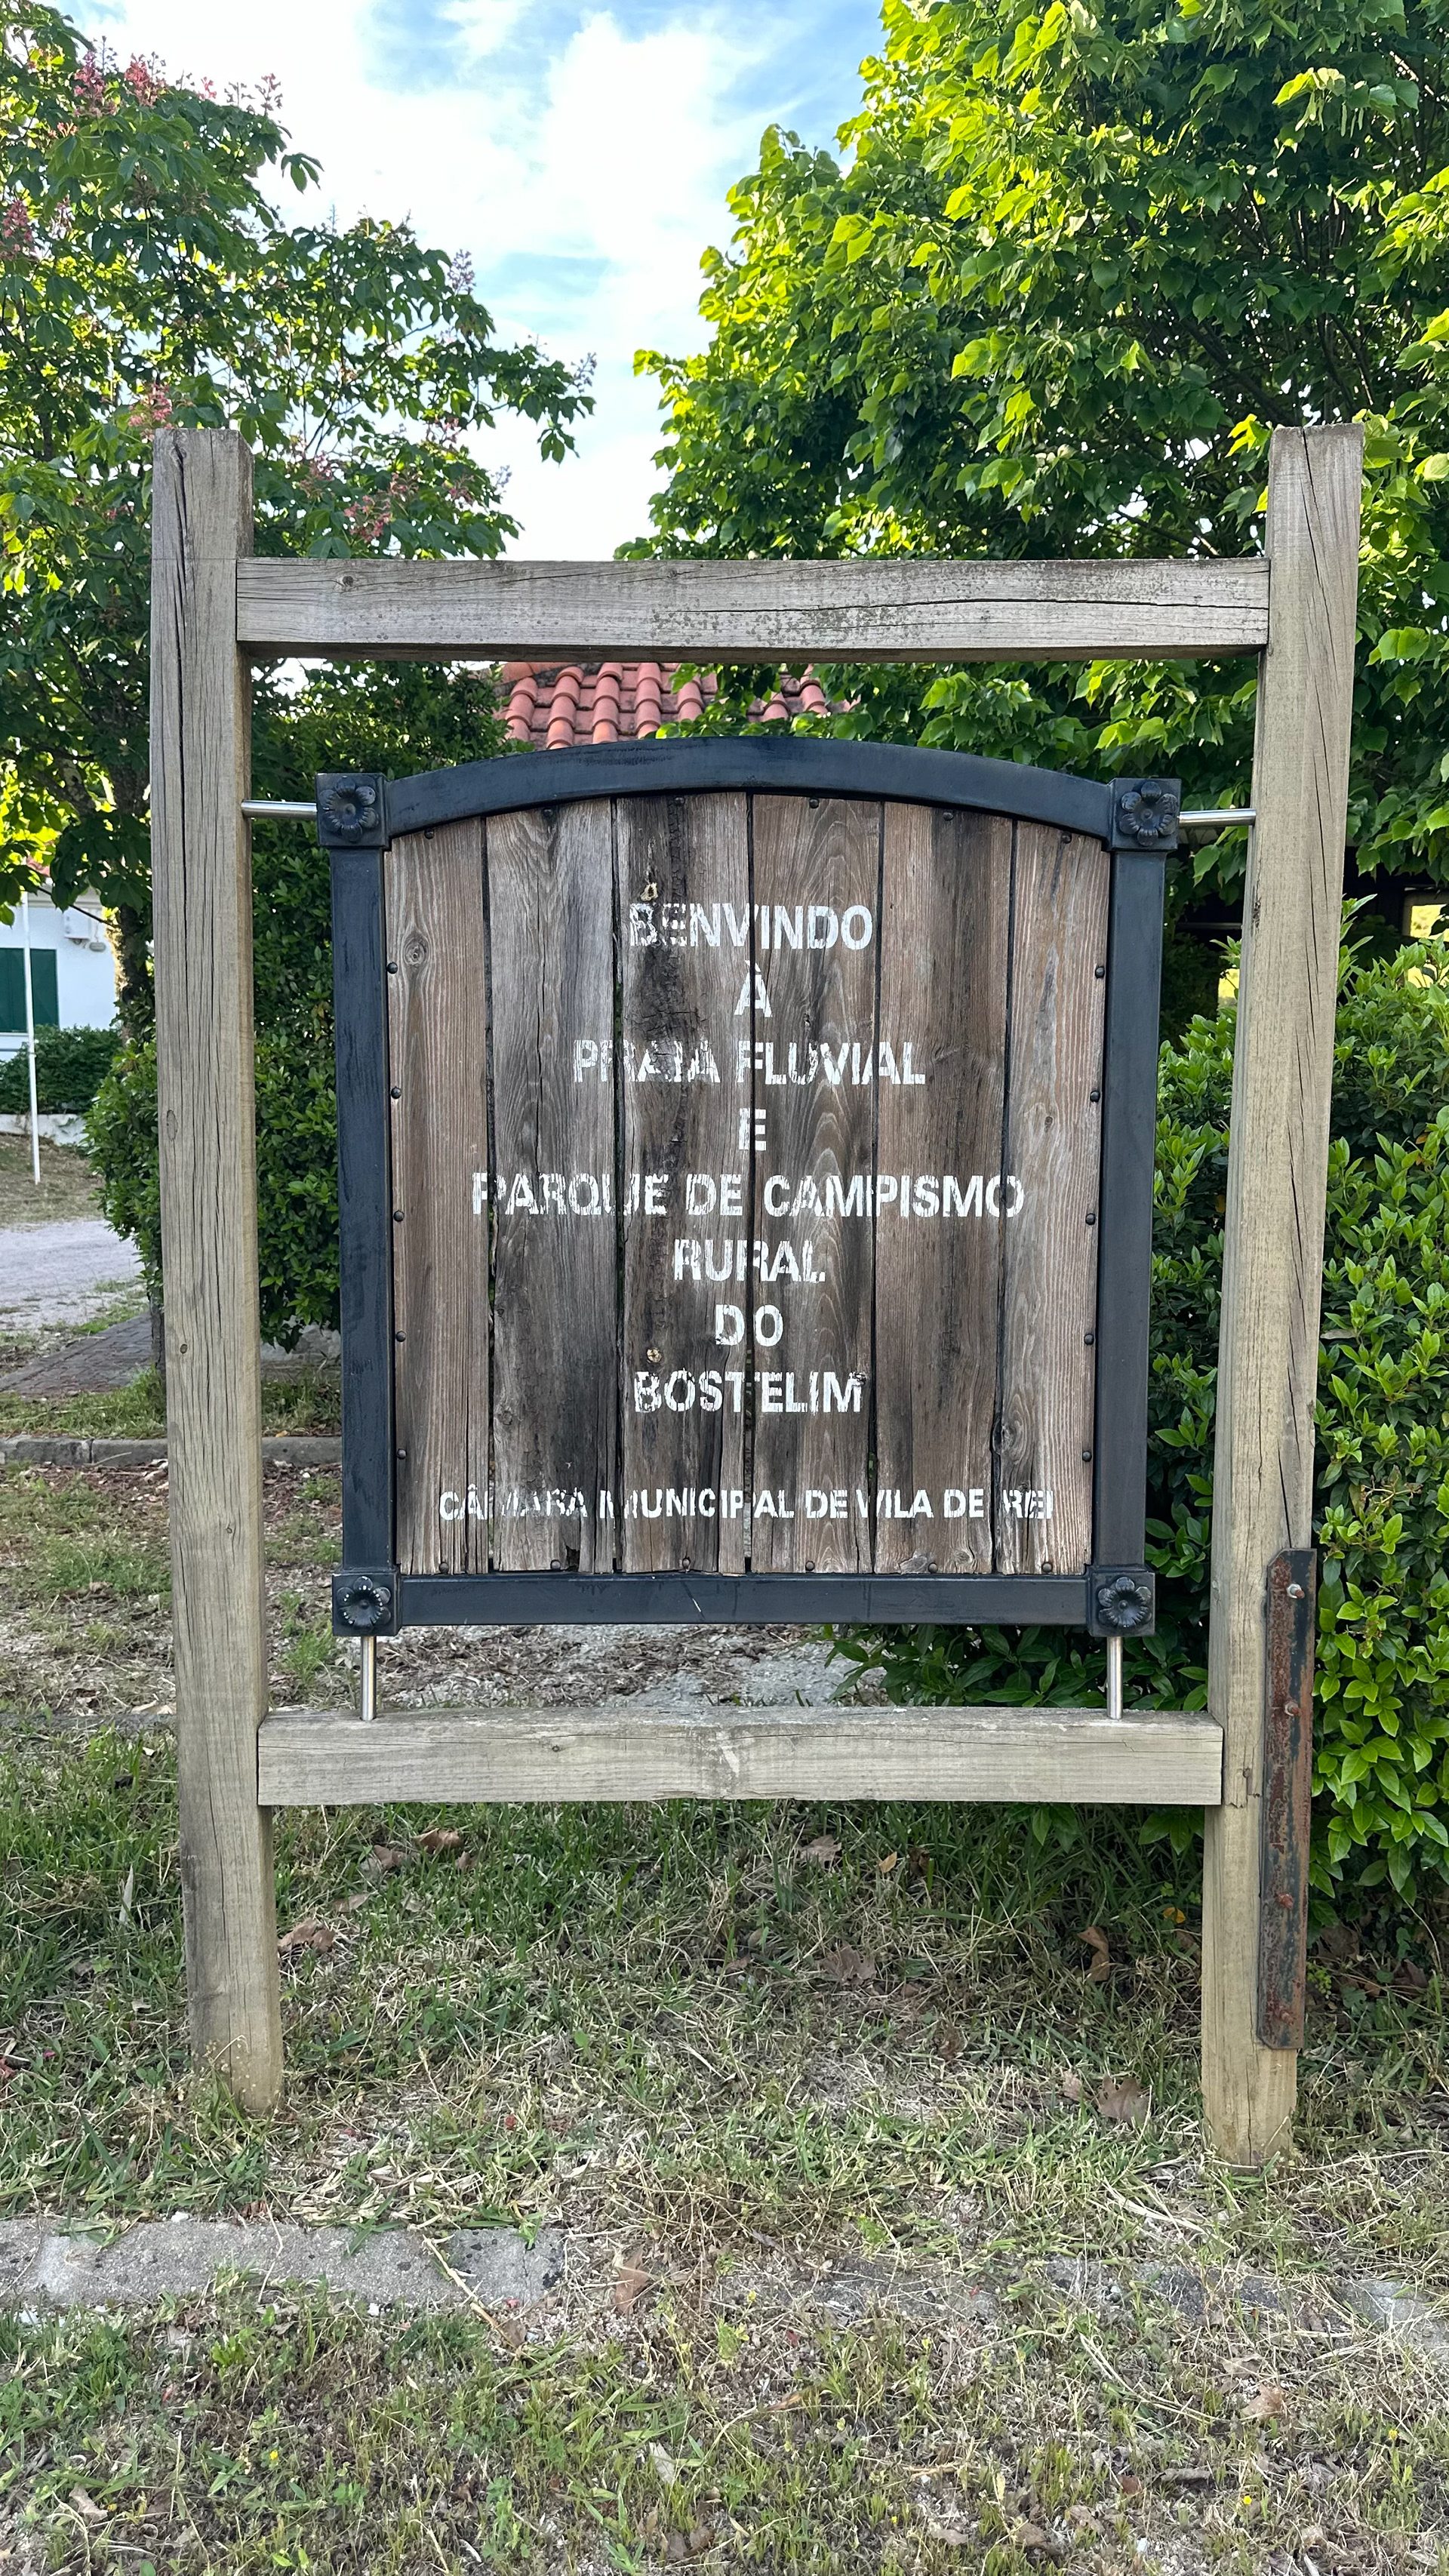 BENVINDO
À
PRAIA FLUVIAL
E
PARQUE DE CAMPISMO
RURAL
DO
BOSTELIM
CÂMARA MUNICIPAL DE VILA DE REI